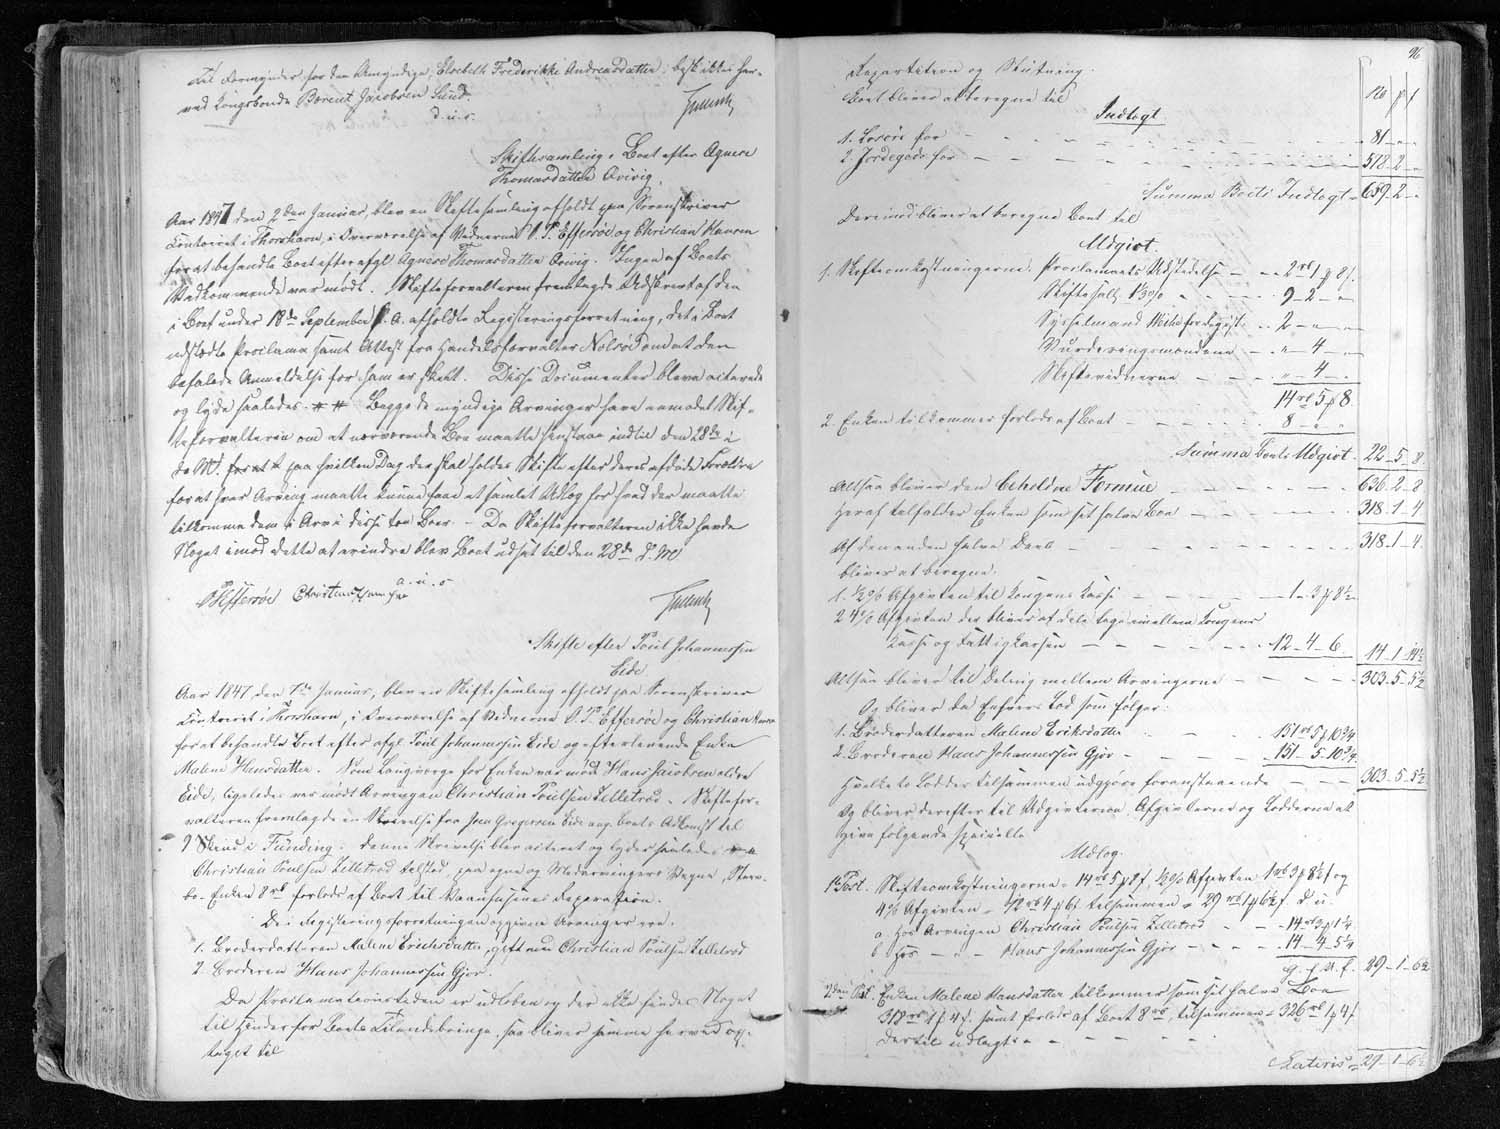 til Formynder for den Umyndige, Elsebeth Frederikke Andreasdatter, beskikkes her-
ved Kongsbonde Berent Jacobsen Sund.
d. u. s.
Skiftesamling i Boet efter Agnese
Thomasdatter Qvivig.
Aar 1847 den 2den Januar, blev en Skiftesamling afholdt paa Sorenskriver
Contoiret i Thorshavn, i Overværelse af Vidnerne P. Effersøe og Christian Hansen
for at behandle Boet efter afgl. Agnese Thomasdatter Qvivig. Ingen af Boets
Vedkommende var mødt. Skifteforvalteren fremlagde Udskrivt af den
i Boet under 18de September f. A. afholdte Registreringsforretning, det i Boet
udstædte Proclama samt Attest fra Handelsforvalter Nolsøe om at den
befalede Anmeldelse for ham er skeet. Disse Documenter bleve acterede
og lyde saaledes Begge de myndige Arvinger have anmodet Skif-
teforvalteren om at nærværende Boe maatte henstaae indtil den 28de i
d. M. for at paa hvilken Dag der skal holdes Skifte efter deres afdøde Forældre
for at hver Arving maatte kunne faae et samlet Udlog for hvad der maatte
tilkomme dem i Arv i disse to Boer. – Da Skifteforvalteren ikke havde
Noget imod dette at erindre blev Boet udsat til den 28de d. M.
a. u. s.
P. Effersøe Christian Hansen
Skifte efter Poul Johannessen
Eide
Aar 1847, den 7de Januar, blev en Skiftesamling afholdt paa Sorenskriver
Contoiret i Thorshavn, i Overværelse af Vidnerne P. Effersøe og Christian Hansen
for at behandle Boet efter afgl. Poul Johannessen Eide og efterlevende Enke
Malene Hansdatter. Som Laugværge for Enken var mødt Hans Jacobsen ældre
Eide, ligeledes var mødt Arvingen Christian Poulsen Zelletrød. Skiftefor-
valteren fremlagde en Skrivelse fra Joen Gregersen Eide ang. Boets Adkomst til
9 Skind i Funding. denne Skrivelse blev acteret og lyder saaledes
Christian Poulsen Zelletrød tilstod, paa egne og Medarvingers Vegne, Sterv-
bo-Enken 8 rbd forlods af Boet til Vaanhusenes Reparation.
De i Registreringsforretningen opgivne Arvinger ere:
1. Broderdatteren Malene Erichsdatter, gift med Christian Poulsen Zelletrød
2. Broderen Hans Johannessen Gjov.
Da Proclamationstiden er udløben og der ikke findes Noget
til Hinder for Boets Tilendebringe, saa bliver samme herved op-
taget til
96
Repartition og Slutning.
Boet bliver at beregne til
Indtægt.
1. Løsøre for – – – 81 – „ – „
2. Jordegods for – – – 578 – 2 – „
Summa Boets Indtægt – 659 – 2 – „
Derimod bliver at beregne Boet til
Udgivt.
1. Skifteomkostningerne: Proclamaets Udstedelse – – 2 rbd 1 ß 8.
Skiftesalt. 1½ % – – – 9 – 2 – „
Sysselmand – – 2 – „ – „
Vurderingsmændene – – „ – 4 – „
Skiftevidnerne – – – „ – 4 – „
14 rbd 5 ß 8.
2. Enken tilkommer forlods af Boet – – – 8 – „ – „
Summa Boets Udgivt – 22 – 5 – 8.
Altsaa bliver den beholdne Formue – – – 636 – 2 – 8
Heraf tilfalder Enken som sit halve Boe – – – 318 – 1 – 4
Af den anden halve Deel – – – 318 – 1 – 4.
bliver at beregne:
1. ½ % Afgivten til Kongens Kasse – – – 1 – 3 ß 8½
2. 4 % Afgivten der bliver at dele lige imellem Kongens
Kasse og Fattigkassen – – – 12 – 4 – 6. 14 – 1 – 14½
Altsaa bliver til Deling mellem Arvingerne – – – 303 – 5 – 5½
Og bliver da Enhvers Lod som følger:
1. Broderdatteren Malene Eriksdatter – – 151 rbd 5 ß 10¾
2. Broderen Hans Johannessen Gjov – – – 151 – 5 – 10¾
Hvilke to Lodder tilsammen udgjøre foranstaaende – – 303 – 5 – 5½
Og bliver derefter til Udgivterne, Afgivterne og Lodderne at
give følgende specielle
Udlog.
1ste Post. Skifteomkostningerne = 14 rbd 5 ß 8 f, ½ % Afgivten 1 rbd 3 ß 8½ f og
4 % Afgivten = 12 rbd 4 ß 6 f. tilsammen = 29 rbd 1 ß 6½ f. d. u.
a. hos Arvingen Christian Poulsen Zelletrød – – 14 rbd 3 ß 1¼
b. hos – „ – Hans Johannessen Gjov – – – 14 – 4 – 5¼
29 – 1 – 6½
2den Post. Enken Malene Hansdatter tilkommer som sit halve Boe
318 rbd 1 ß 4 f. samt forlods af Boet 8 rbd, tilsammen = 326 rbd 1 ß 4 f.
dertil udlægges – – –
Lateris = 29 – 1 – 6½